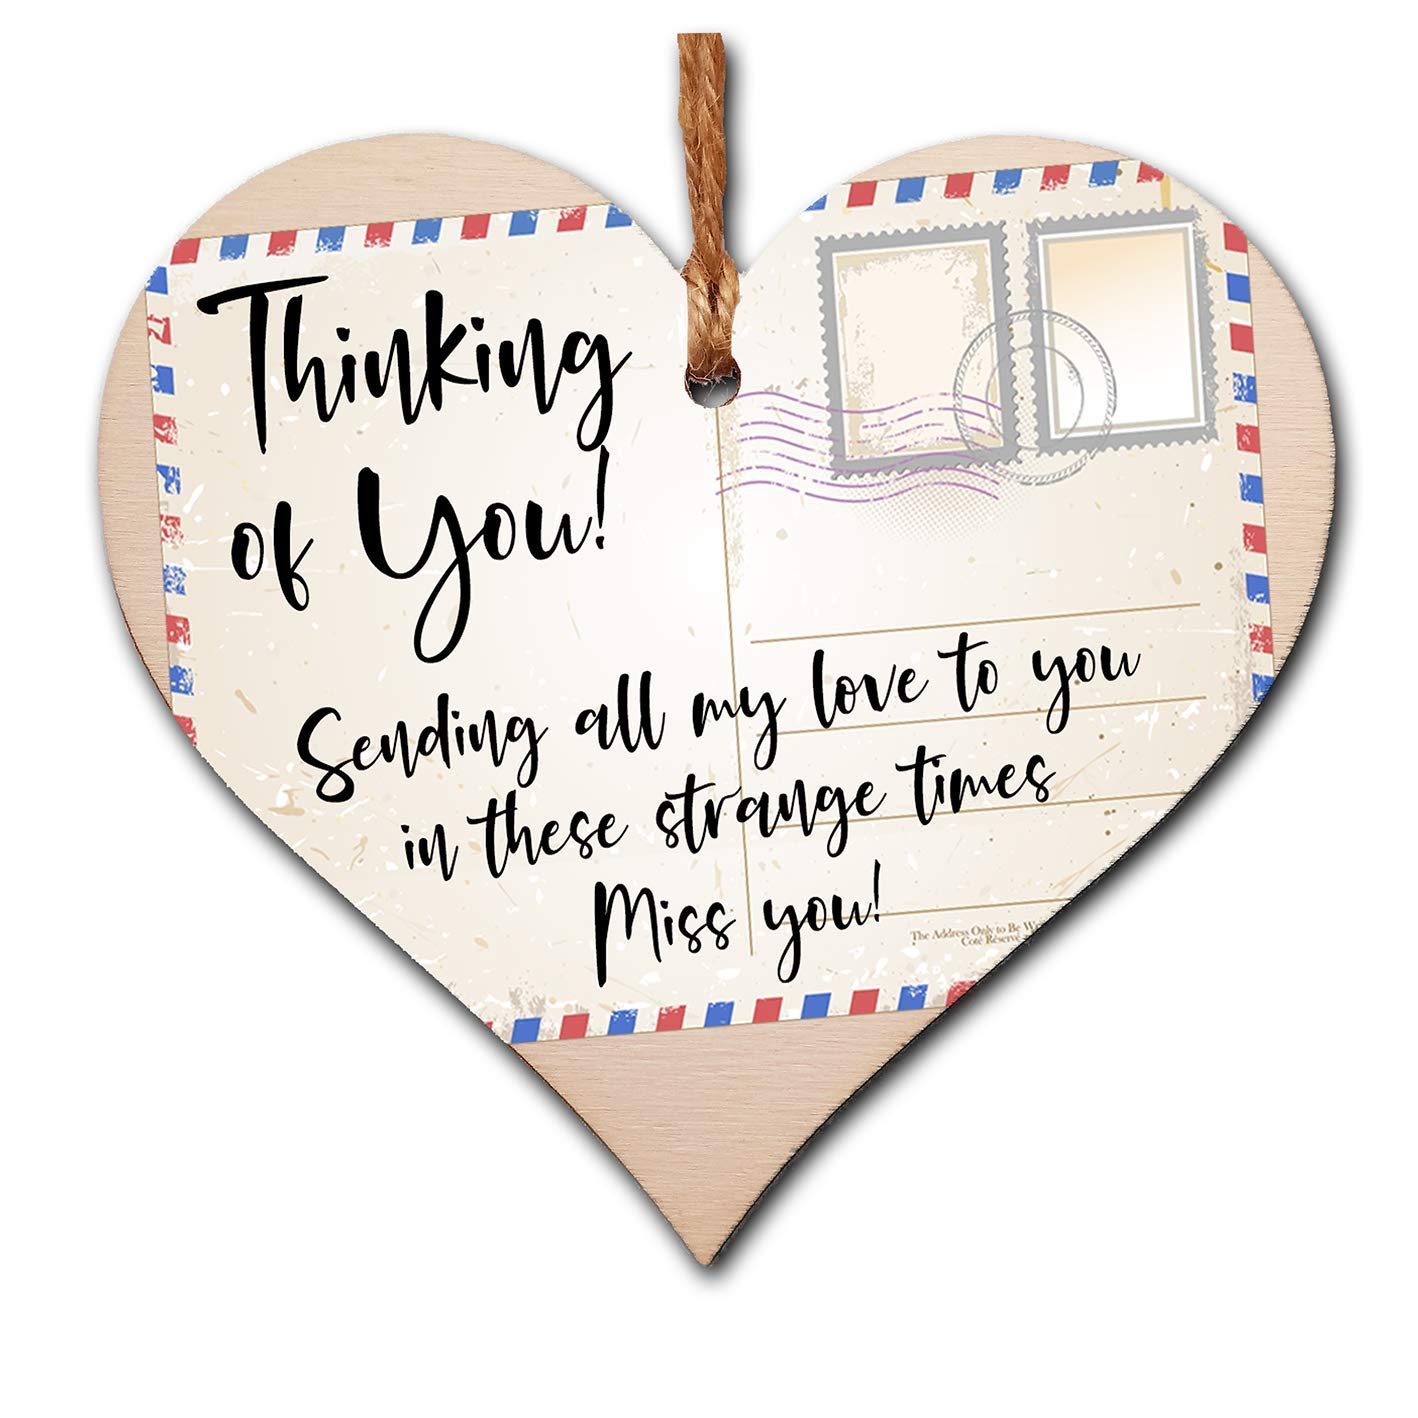 Thinking
of You!
Sending all my love to you
in these strange times
Miss you!
The Address Only to Be
Coté Réservé